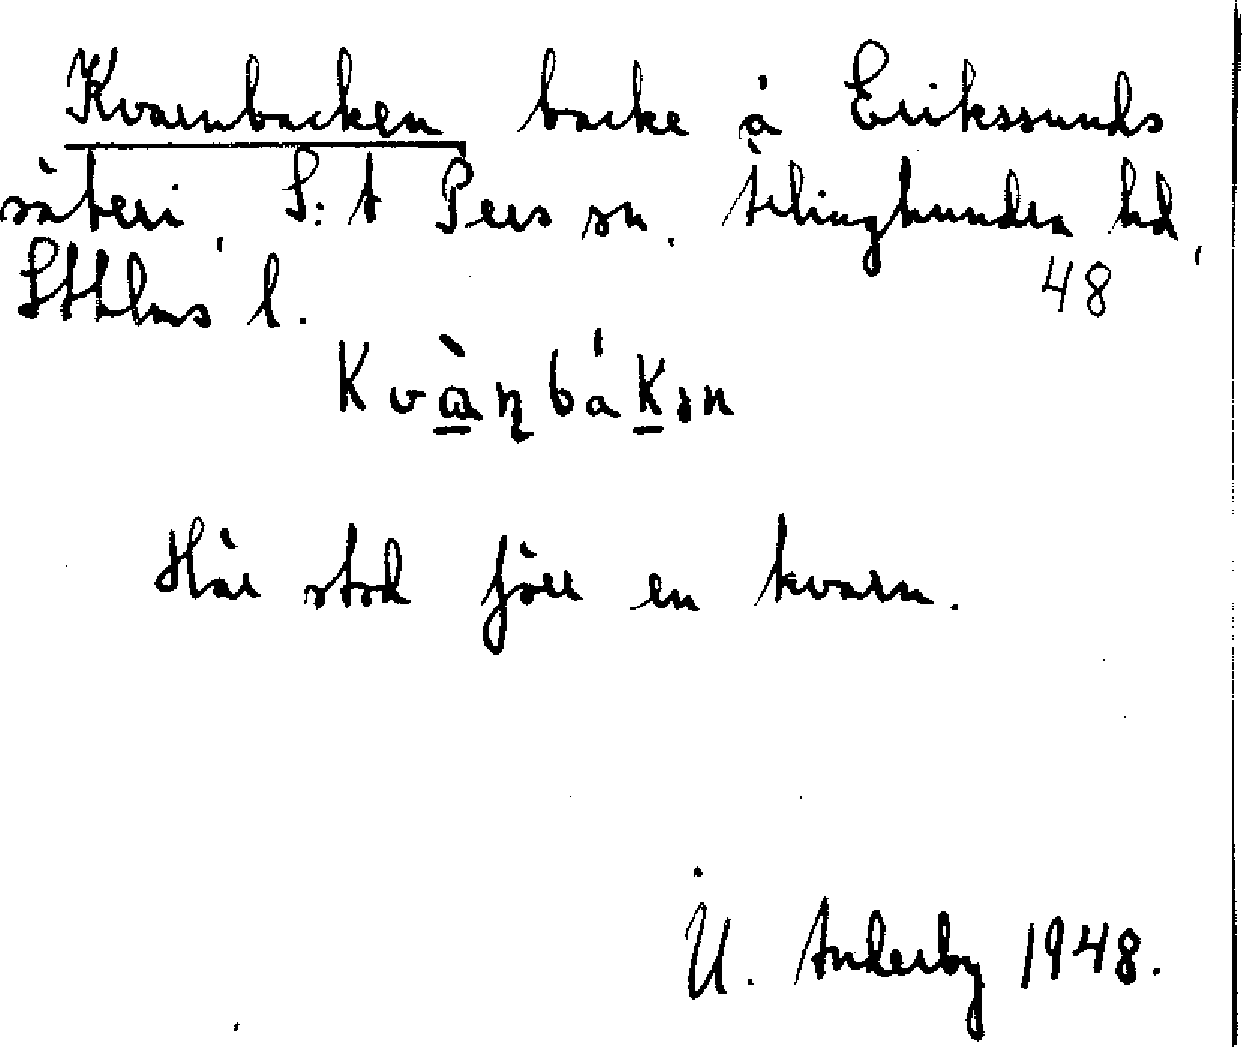 Kvarnbacken backe å Erikssunds
säteri, S:t Pers sn. Ärlinghundra hd,
Sthlms l. 48
Kvɑ̀ɳbákən
Här stod förr en kvarn.
U. Anderby 1948.